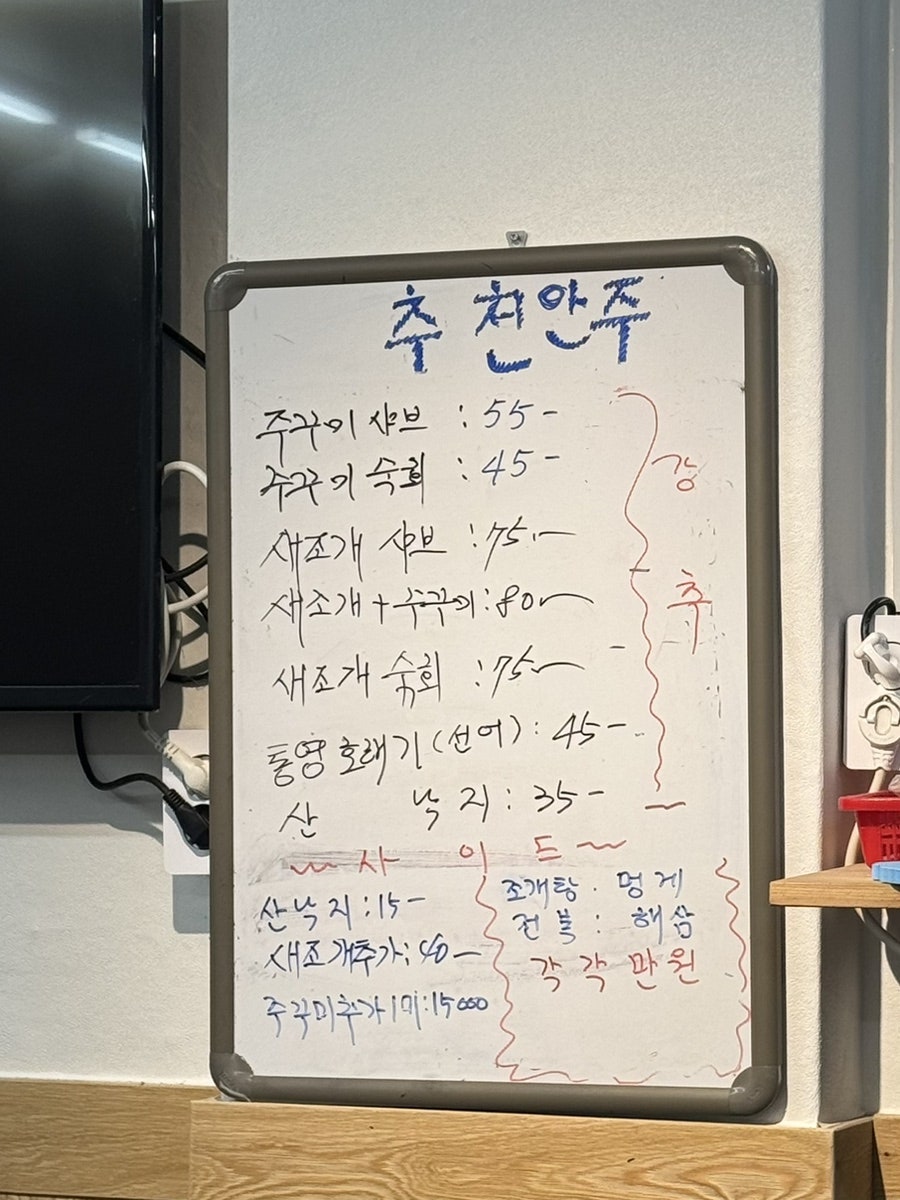 추천안주
주꾸미 샤브 : 55-
주꾸미 숙회 : 45-
새조개 샤브 : 75.-
새조개 + 주꾸미 : 80-
새조개 숙회 : 75-
통영 호래기 (선어) : 45-
산 낙지 : 35-
강추
~사이드~
산낙지 : 15-
새조개추가 : 40-
주꾸미추가 1미 : 15000
조개탕 . 멍게
전복 : 해삼
각각 만원